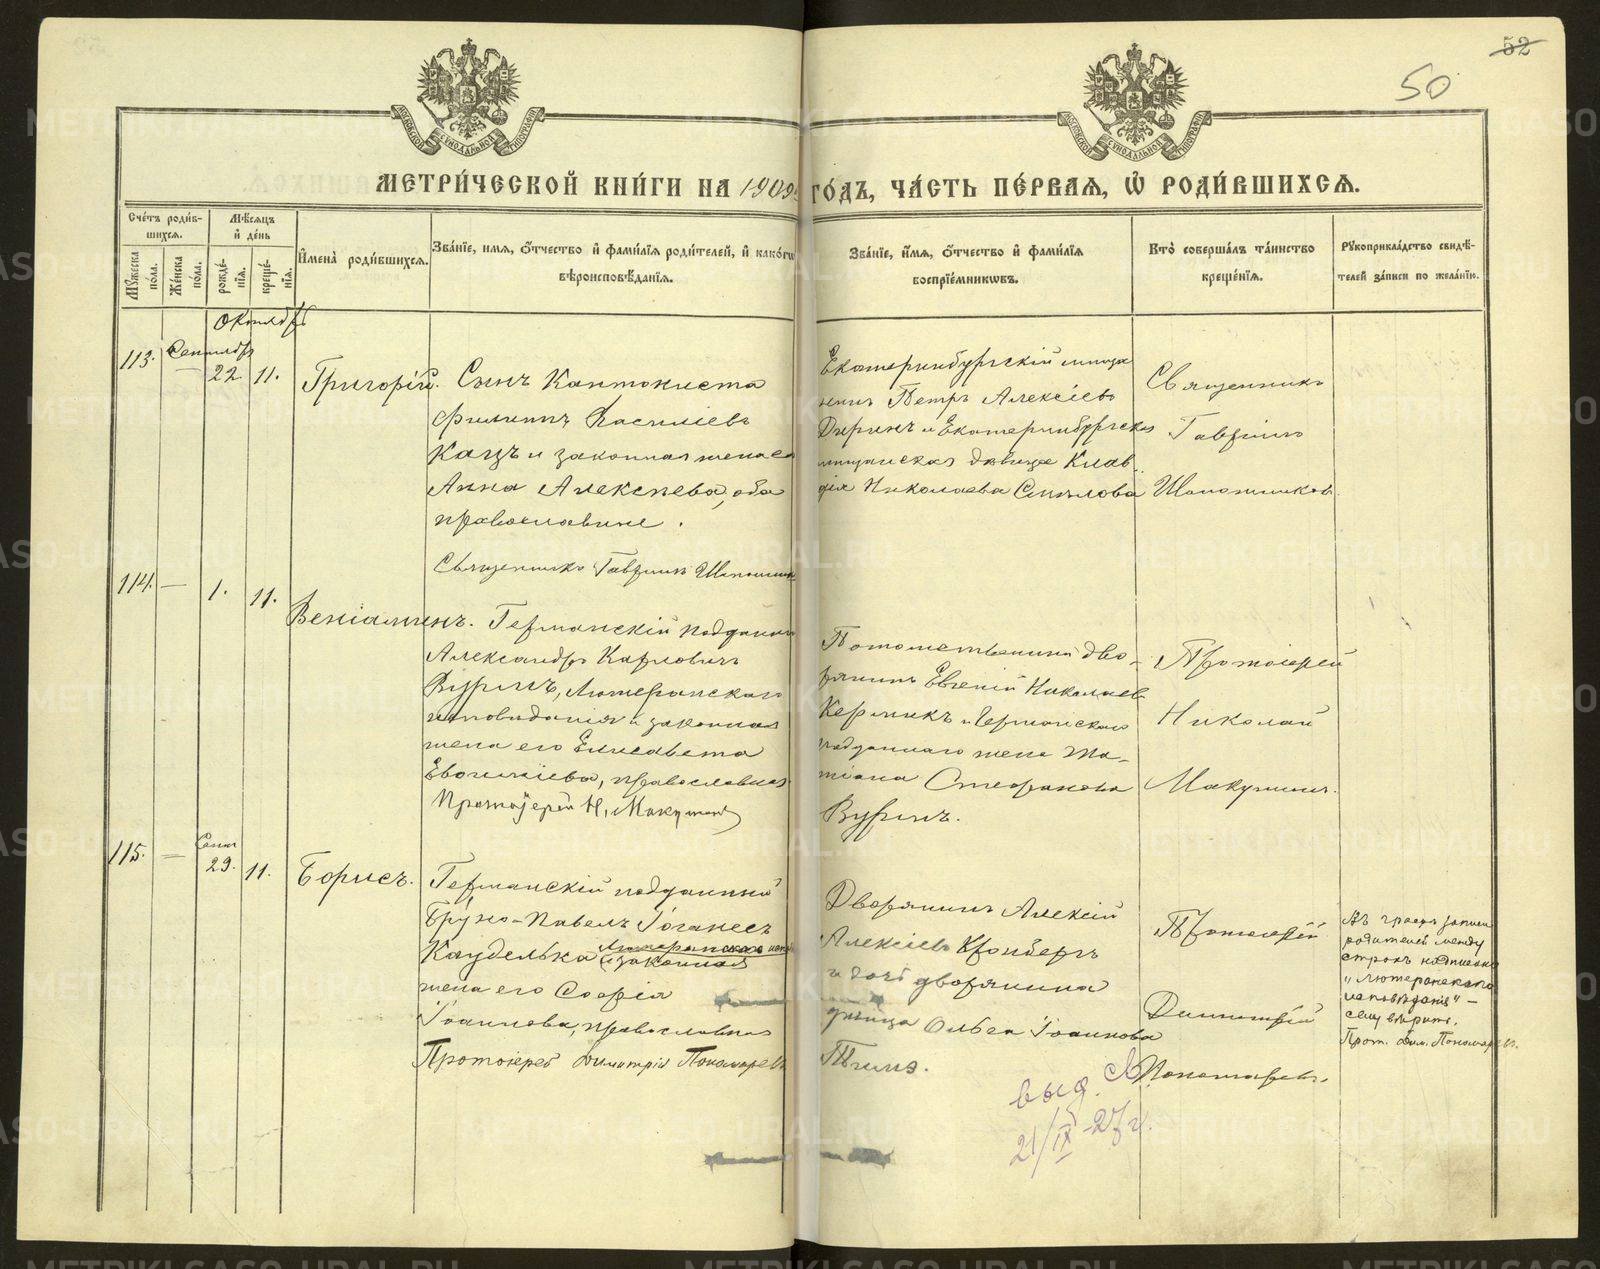 52
50
МОСКОВСКОЙ СѴНОДАЛЬНОЙ ТИПОГРАФІИ
МОСКОВСКОЙ СѴНОДАЛЬНОЙ ТИПОГРАФІИ
МЕТРИ́ЧЕСКОЙ КНИ́ГИ НА 1909 ГО́ДЪ, ЧА́СТЬ ПЕ́РВАЯ, Ѡ҆ РОДИ́ВШИХСЯ.
Сче́тъ роди́в-
шихся.
Мѣ́сяцъ
и҆ де́нь
Мꙋ́жеска по́ла.
Же́нска по́ла.
рожде́-нїя.
креще́-нїя.
И҆мена̀ роди́вшихся.
Зва́нїе, и҆мя, ѻ҆́тчество и҆ фами́лїя роди́телей, и҆ како́гѡ
вѣроисповѣ́данїя.
Зва́нїе, и҆́мя, ѻ҆́тчество и҆ фами́лїя
воспрїе́мникѡвъ.
Кто̀ соверша́лъ та́инство
креще́нїя.
Рꙋкоприкла́дство свидѣ́-
телей за́писи по жела́нїю.
Октябрь
Сентябрь
113. — 22 11. Григорій.
Сынъ Кантониста
Филиппъ Василіевъ
Кацъ и законная жена его
Анна Алексѣева, оба
православные.
Священникъ Гавріилъ
Екатеринбургскій мѣща-
нинъ Петръ Алексіевъ
и Екатеринбургская
мѣщанская дѣвица Клав-
дія Николаева
Священникъ
Гавріилъ
Шапошниковъ.
114. — 1. 11. Веніаминъ.
Германскій подданный
Александръ Карловичъ
Вурмъ, Лютеранскаго
исповѣданія и законная
жена его Елисавета
Евгеніева, православная
Протоіерей Н. Макушинъ
Потомственный дво-
рянинъ Евгеній Николаевъ
и Германскаго
подданнаго жена Та-
тіана Стефанова
Вурмъ.
Протоіерей
Николай
Макушинъ.
Сент.
115. — 29. 11. Борисъ.
Германскій подданный
Бруно-Павелъ Іоганнесъ
Кауделька Лютеранскаго испов.
и законная
жена его Софія
Іоаннова, православная
Протоіерей Димитрій Пономаревъ
Дворянинъ Алексій
Алексіевъ Кронбергъ
и дочь дворянина
дѣвица Ольга Іоаннова
Тиме.
Протоіерей
Димитрій
Пономаревъ.
Въ графѣ записи
родителей между
строкъ надписано
"Лютеранскаго
исповѣданія" —
сему вѣрить.
Прот. Дим. Пономаревъ.
выд.
21/IX-27г.
METRIKI.GASO-URAL.RU